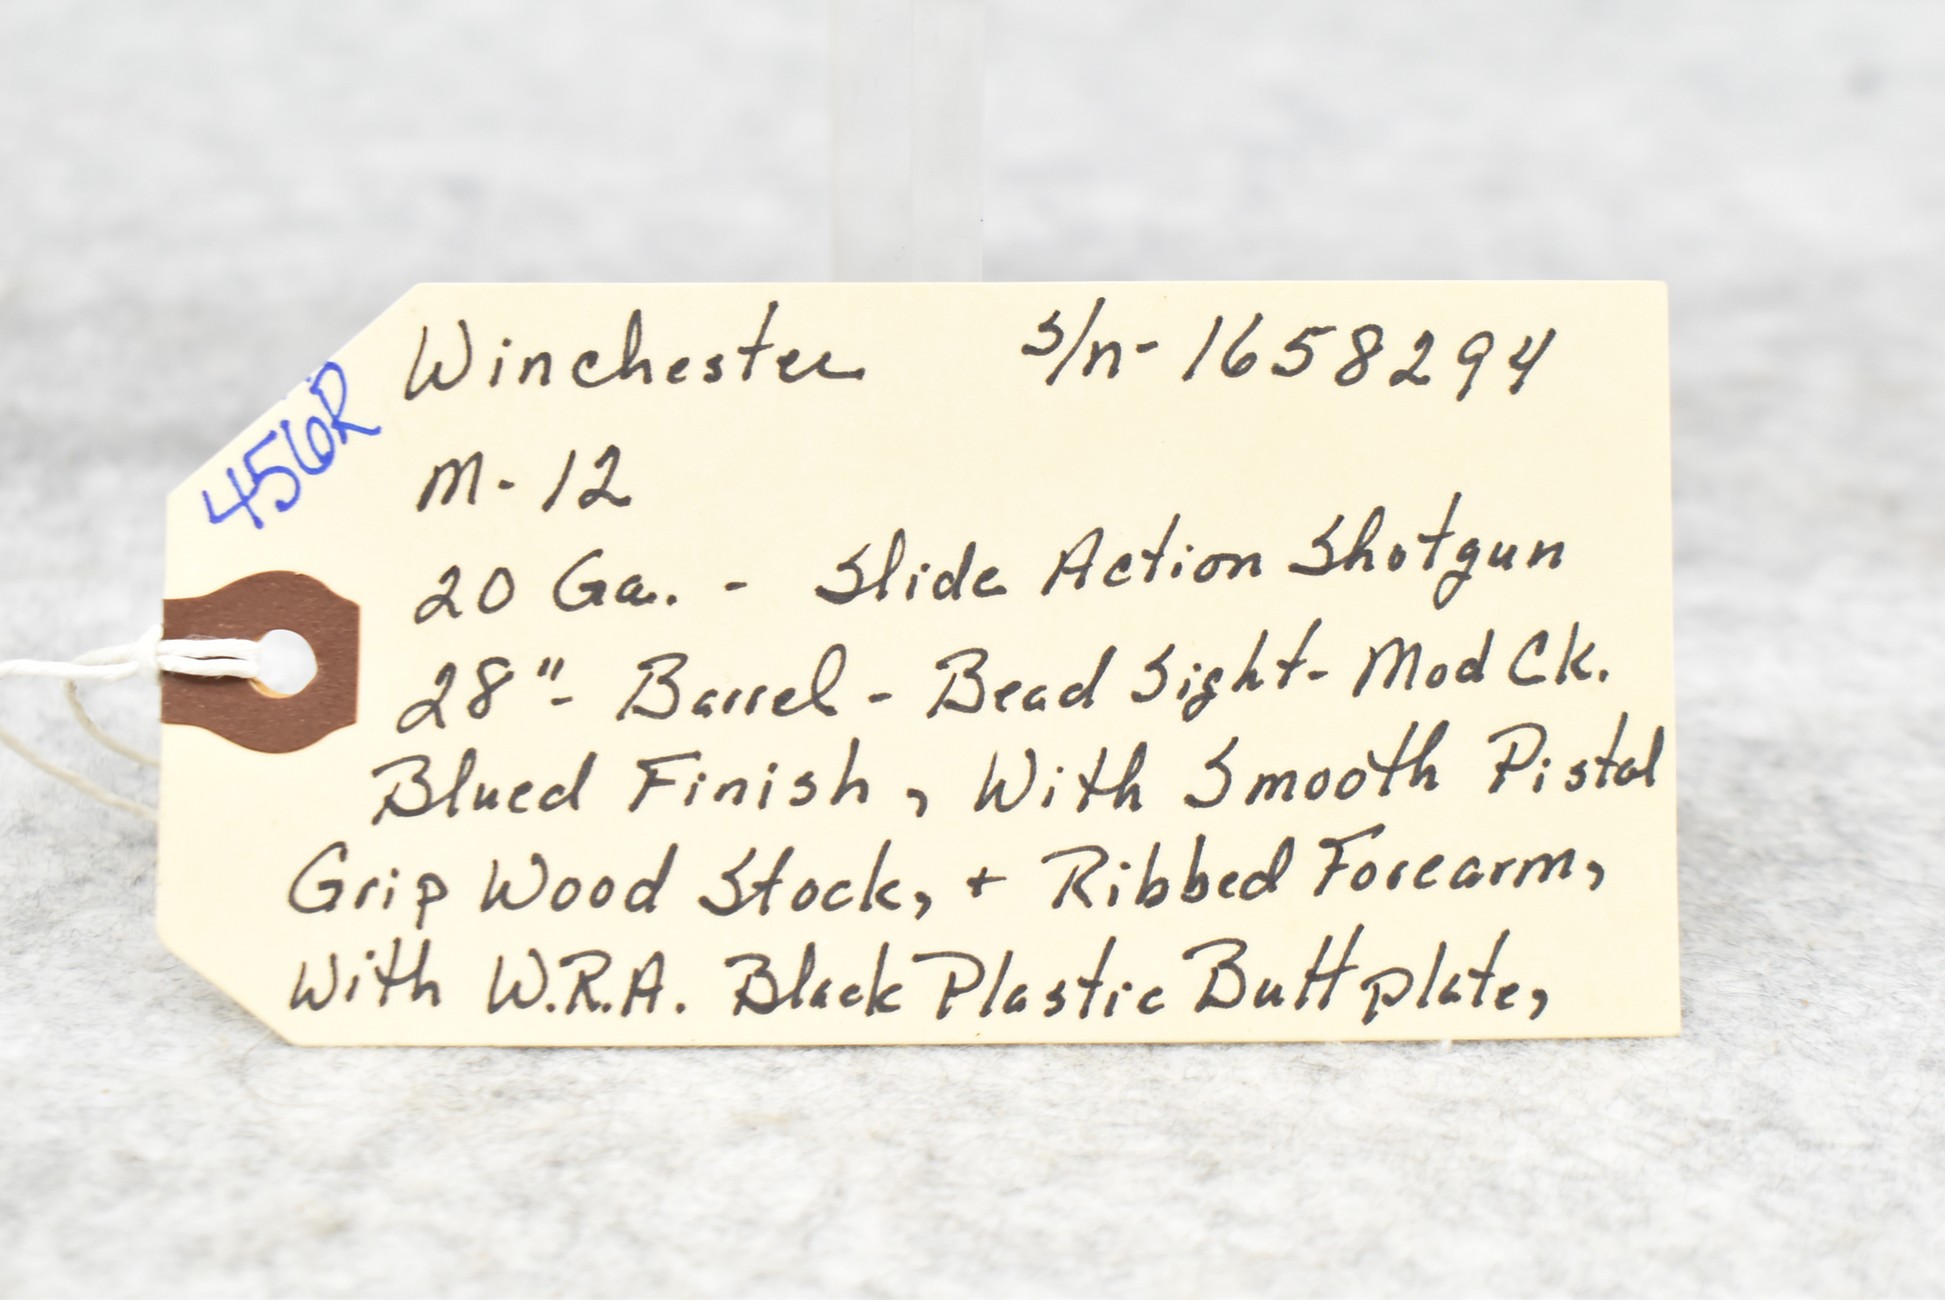 456R
Winchester s/n- 1658294
M-12
20 Ga. - Slide Action Shotgun
28"- Barrel - Bead Sight- Mod Ck.
Blued Finish, With Smooth Pistol
Grip Wood Stock, + Ribbed Forearm,
With W.R.A. Black Plastic Buttplate,